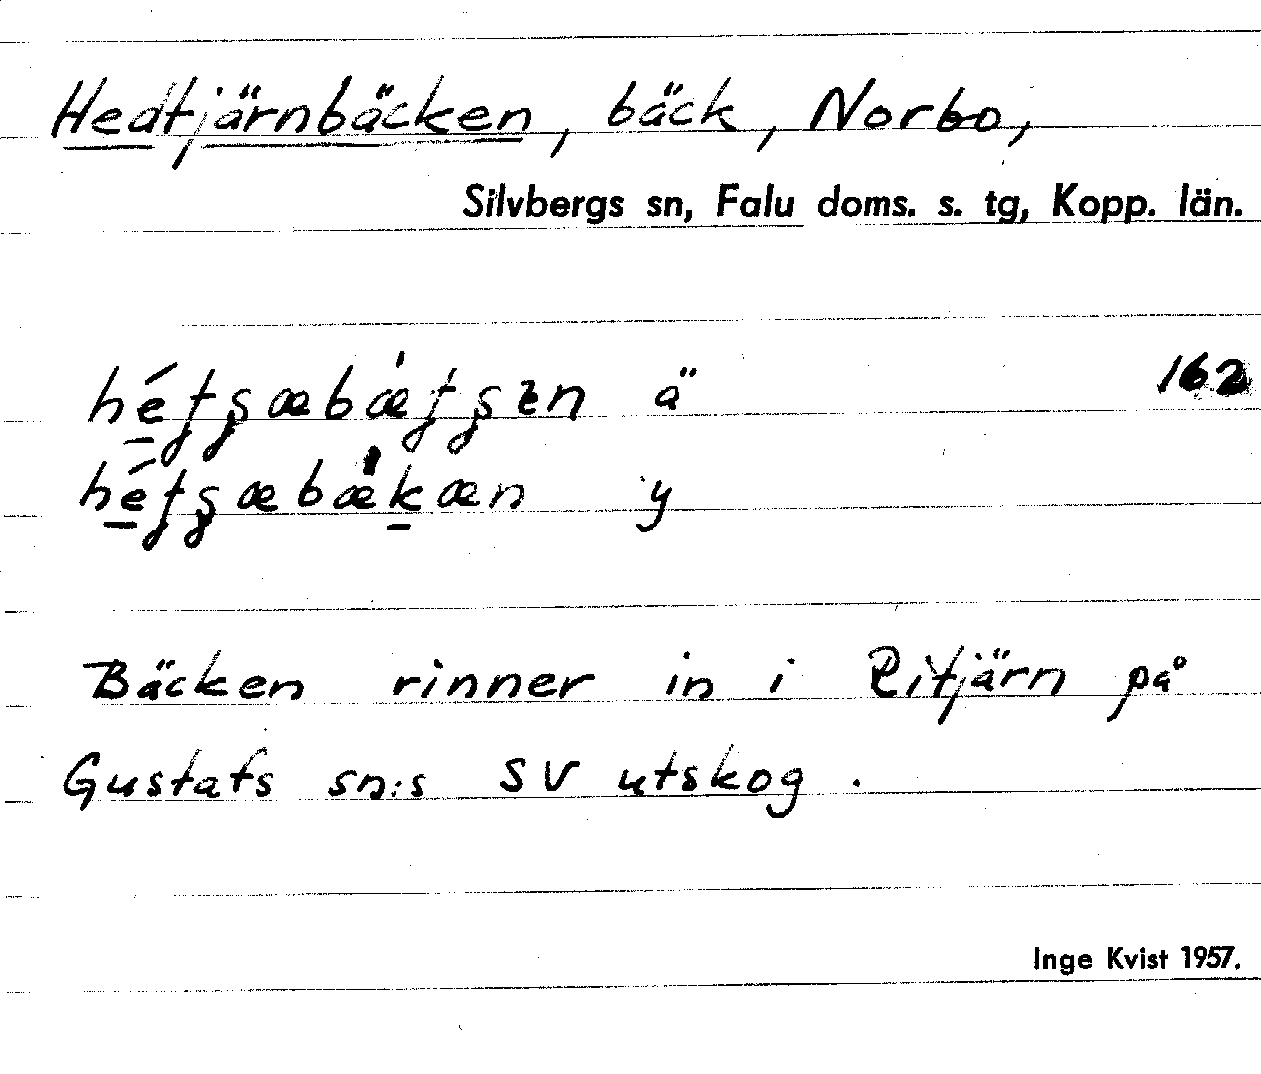 Hedtjärnbäcken, bäck, Norbo,
Silvbergs sn, Falu doms. s. tg, Kopp. län.
ä 162
y
Bäcken rinner in i Ritjärn på
Gustafs sn:s SV utskog.
Inge Kvist 1957.